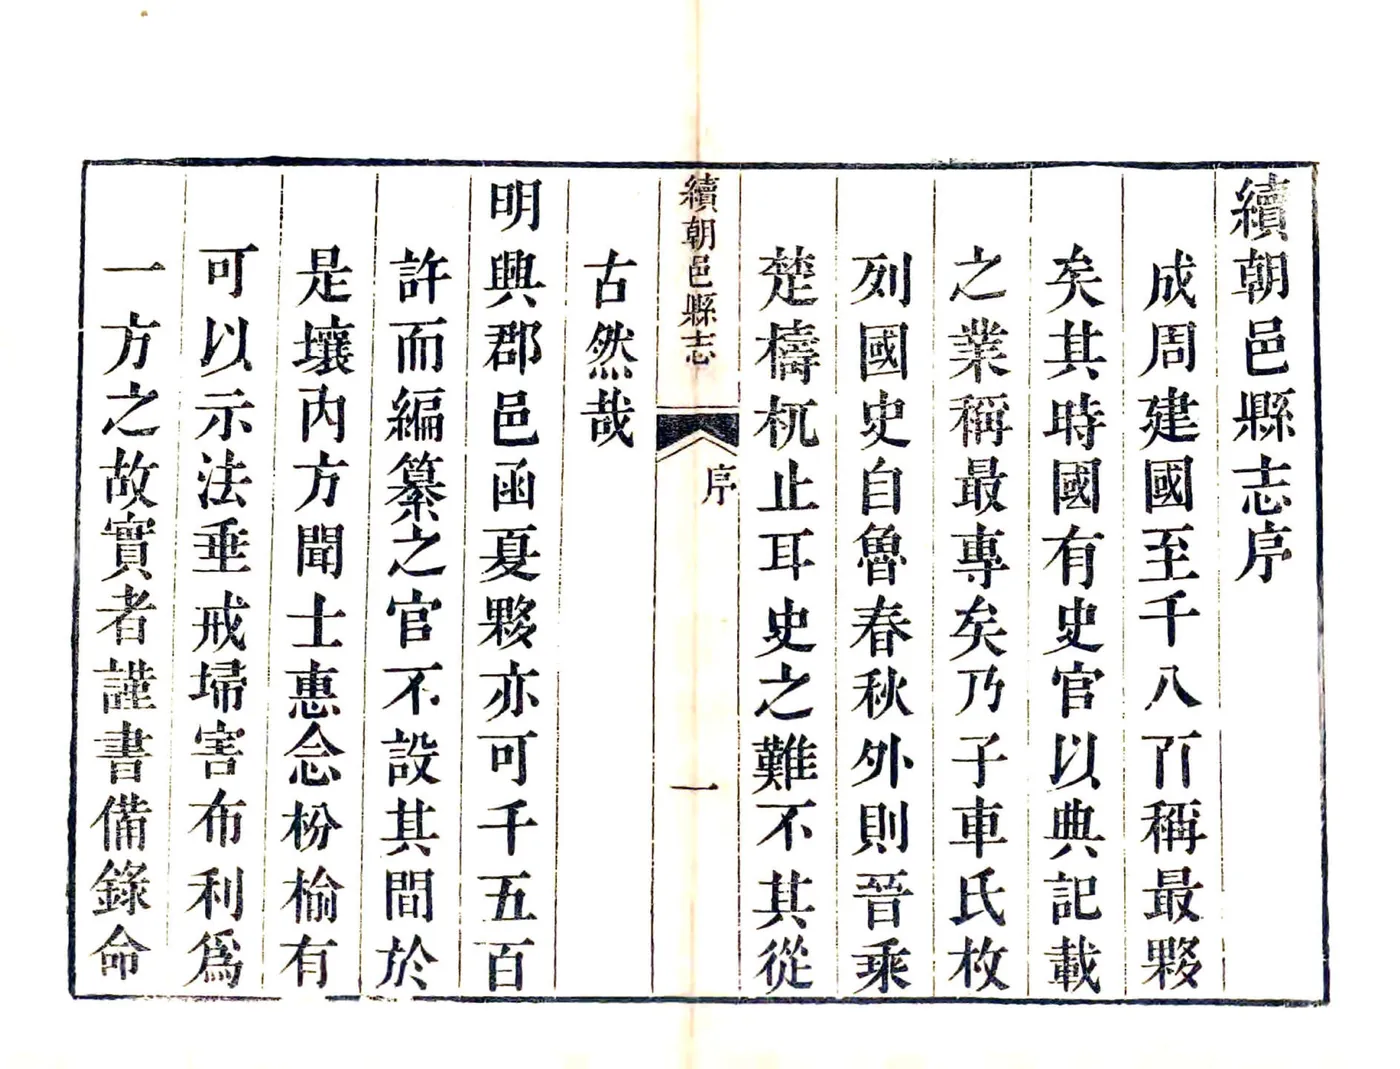 續朝邑縣志序
成周建國至千八百稱最夥
矣其時國有史官以典記載
之業稱最專矣乃子車氏枚
列國史自魯春秋外則晉乘
楚檮杌止耳史之難不其從
續朝邑縣志
序
一
古然哉
明興郡邑函夏夥亦可千五百
許而編纂之官不設其間於
是壤內方聞士惠念枌榆有
可以示法垂戒埽害布利爲
一方之故實者謹書備錄命